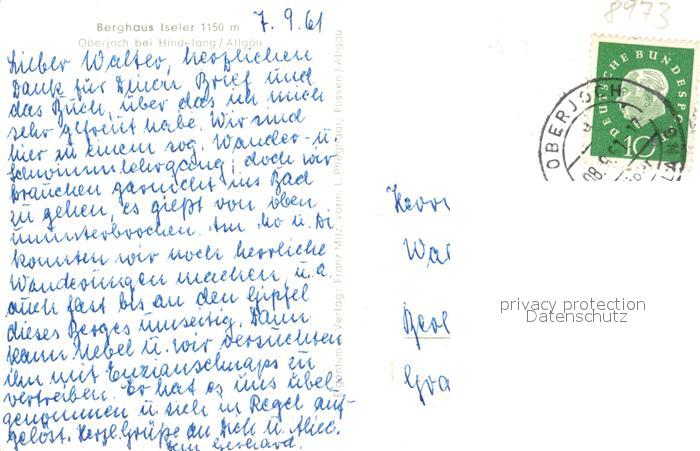 8973
Berghaus Iseler 1150 m
Oberjoch bei Hindelang/Allgäu
7.9.61
Lieber Walter, herzlichen
Dank für Deinen Brief und
das Buch, über das ich mich
sehr gefreut habe. Wir sind
hier zu einem sog. Wander- u.
Schwimmlehrgang, doch wir
brauchen garnicht ins Bad
zu gehen, es gießt von oben
ununterbrochen. Am Mo u. Di
konnten wir noch herrliche
Wanderungen machen, u.a.
auch fast bis an den Gipfel
dieses Berges umseitig. Dann
kam Nebel u. wir versuchten
ihn mit Enzianschnaps zu
vertreiben. Er hat es uns übel-
genommen u. sich in Regel auf-
gelöst. Herzl. Grüße an Dich u. Alice.
Dein Gerhard.
Eigentum u. Verlag: Franz Milz, vorm. L. Füssen/Allgäu
DEUTSCHE BUNDESPOST
10
OBERJOCH
08.9.61
Herrn
Wal
Berl
Gra
privacy protection
Datenschutz